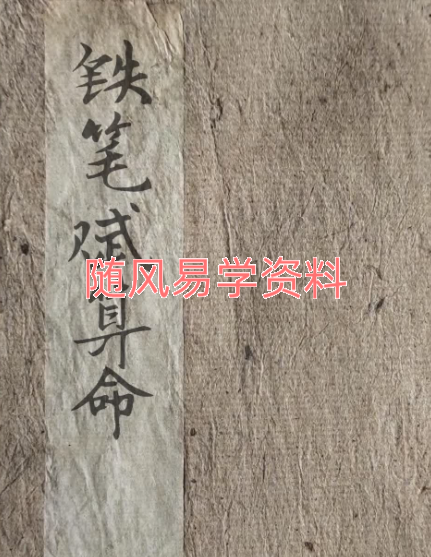 铁笔赋算命
随风易学资料